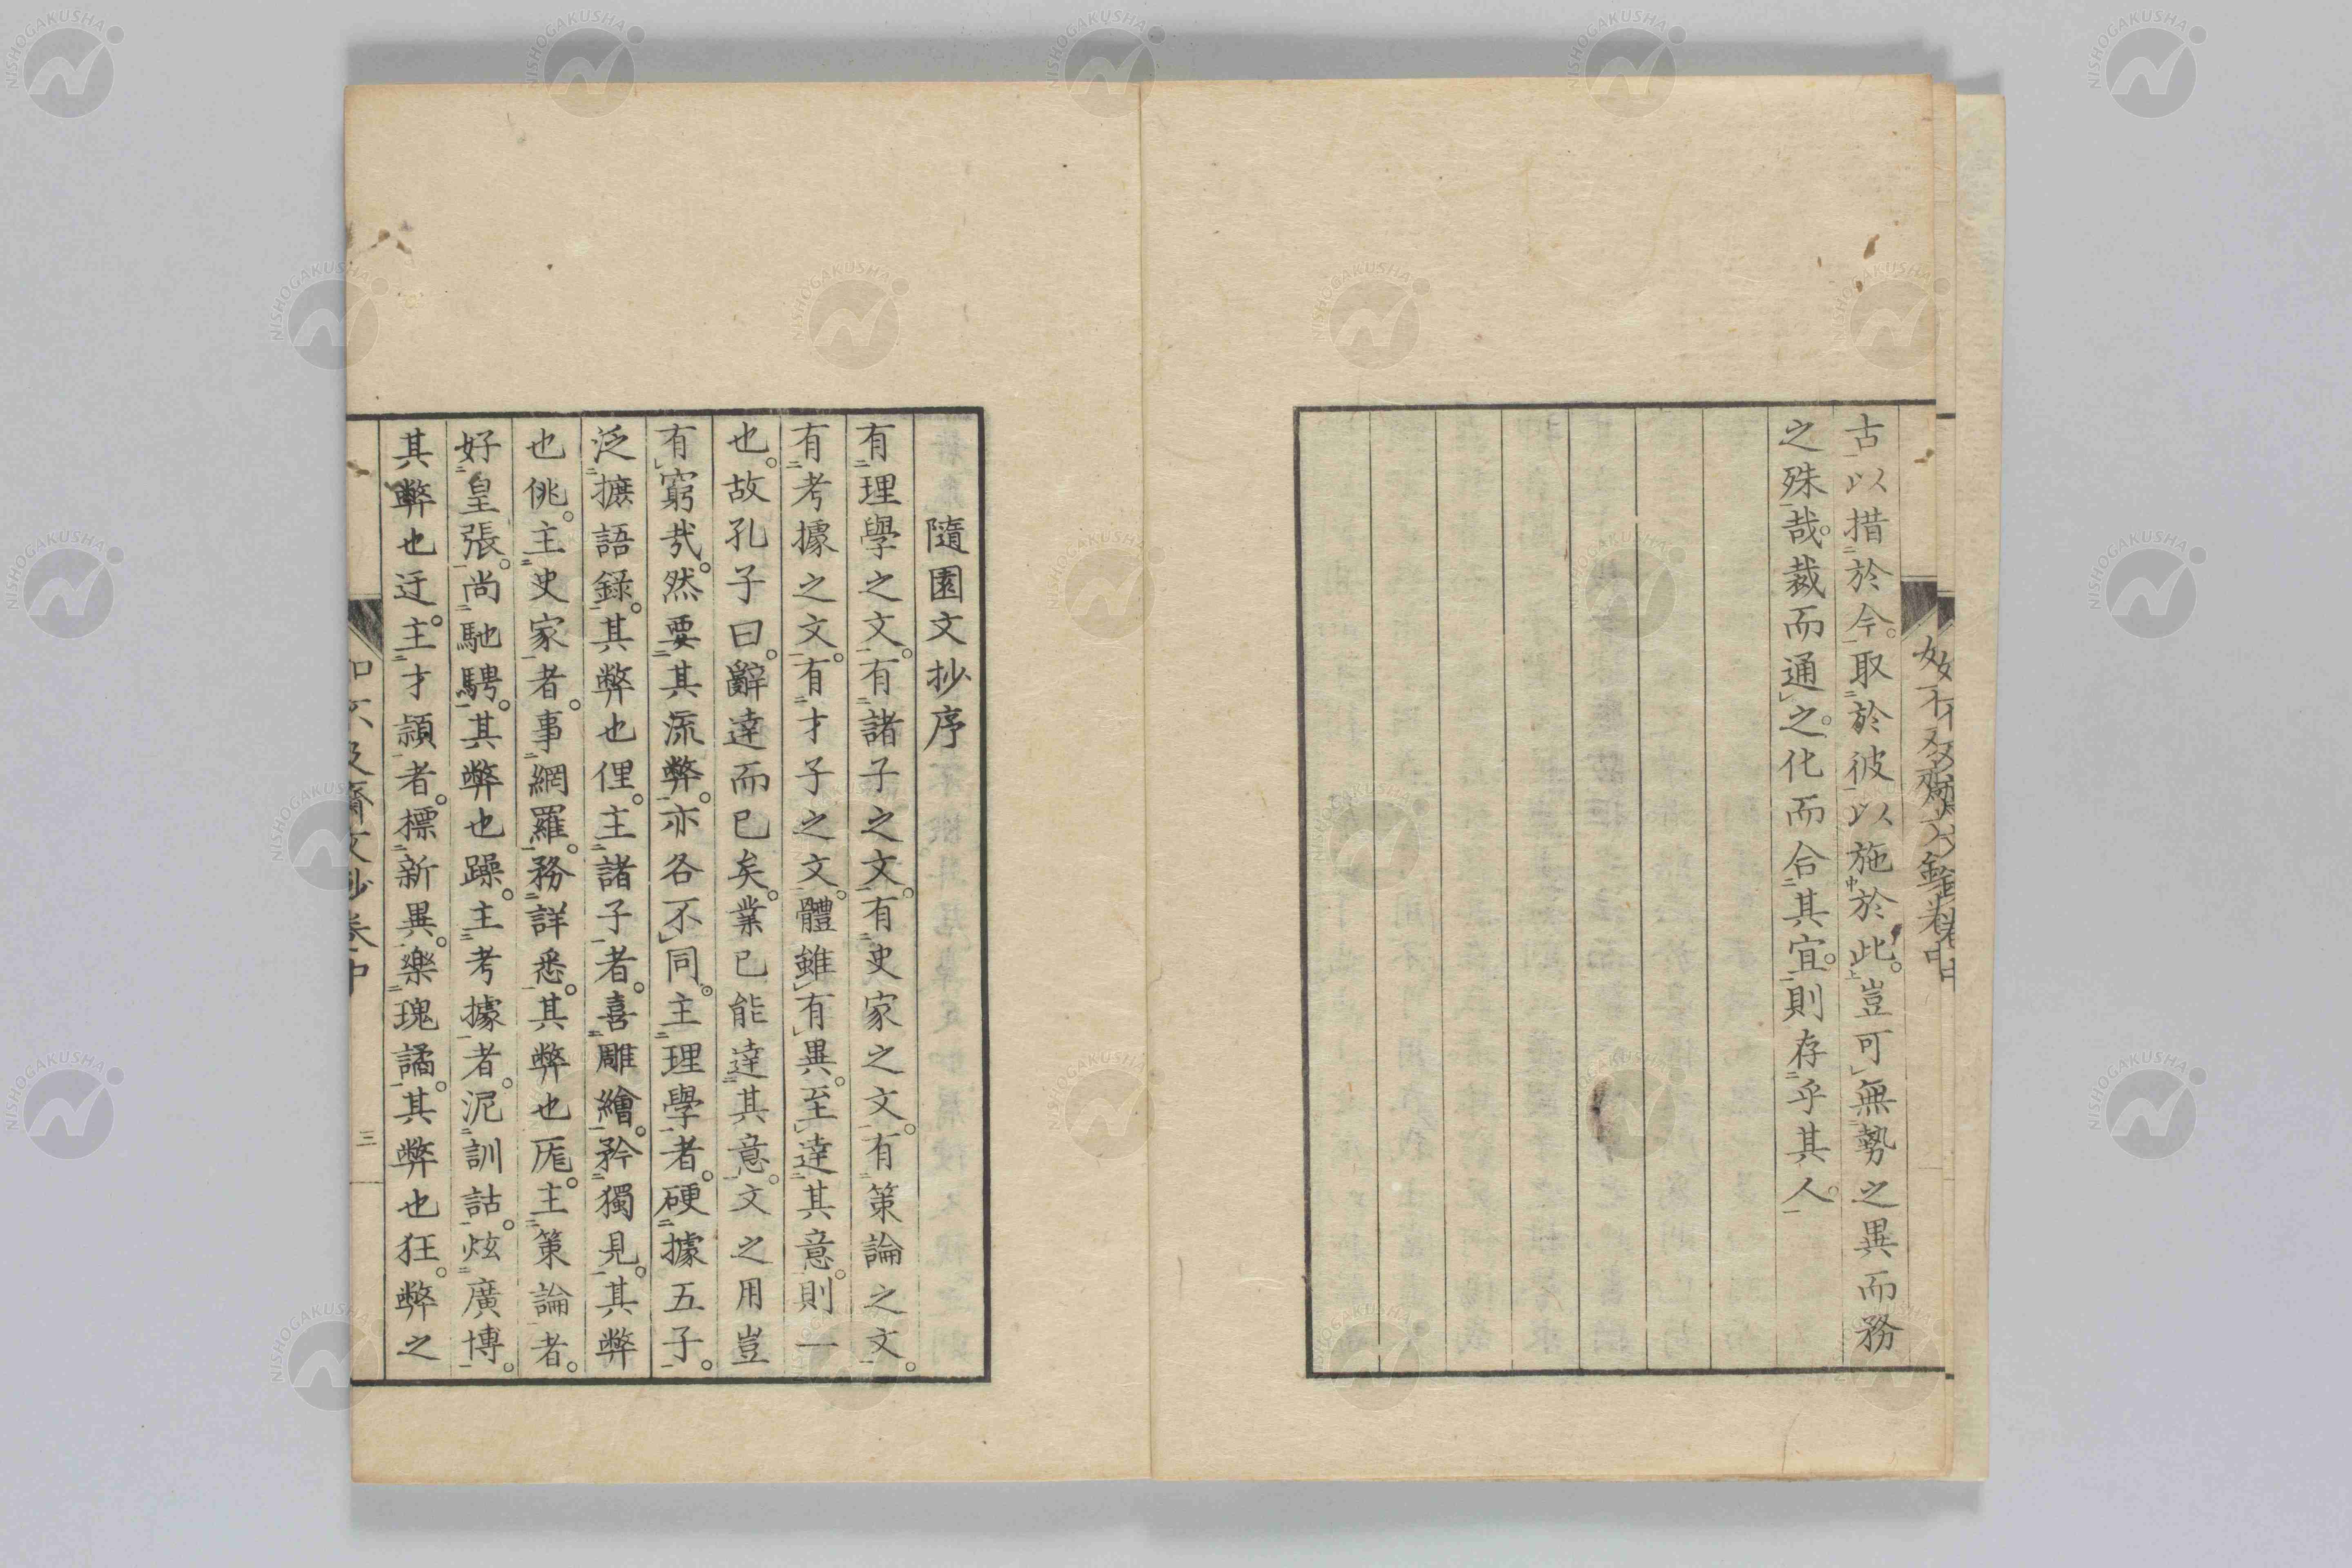 古以措於今。取於彼以施於此。豈可無勢之異而務
之殊哉。裁而通之。化而合其宜。則存乎其人。
隨園文抄序
有理學之文。有諸子之文。有史家之文。有策論之文。
有考據之文。有才子之文。體雖有異。至達其意。則一
也。故孔子曰。辭達而已矣。業已能達其意。文之用豈
有窮哉。然要其流弊。亦各不同。主理學者。硬據五子。
泛摭語錄。其弊也俚。主諸子者。喜雕繪。矜獨見。其弊
也佻。主史家者。事網羅。務詳悉。其弊也厖。主策論者。
好皇張。尚馳騁。其弊也躁。主考據者。泥訓詁。炫廣博。
其弊也迂。主才穎者。標新異。樂瑰譎。其弊也狂。弊之
如不及齋文鈔卷中
三
NISHOGAKUSHA